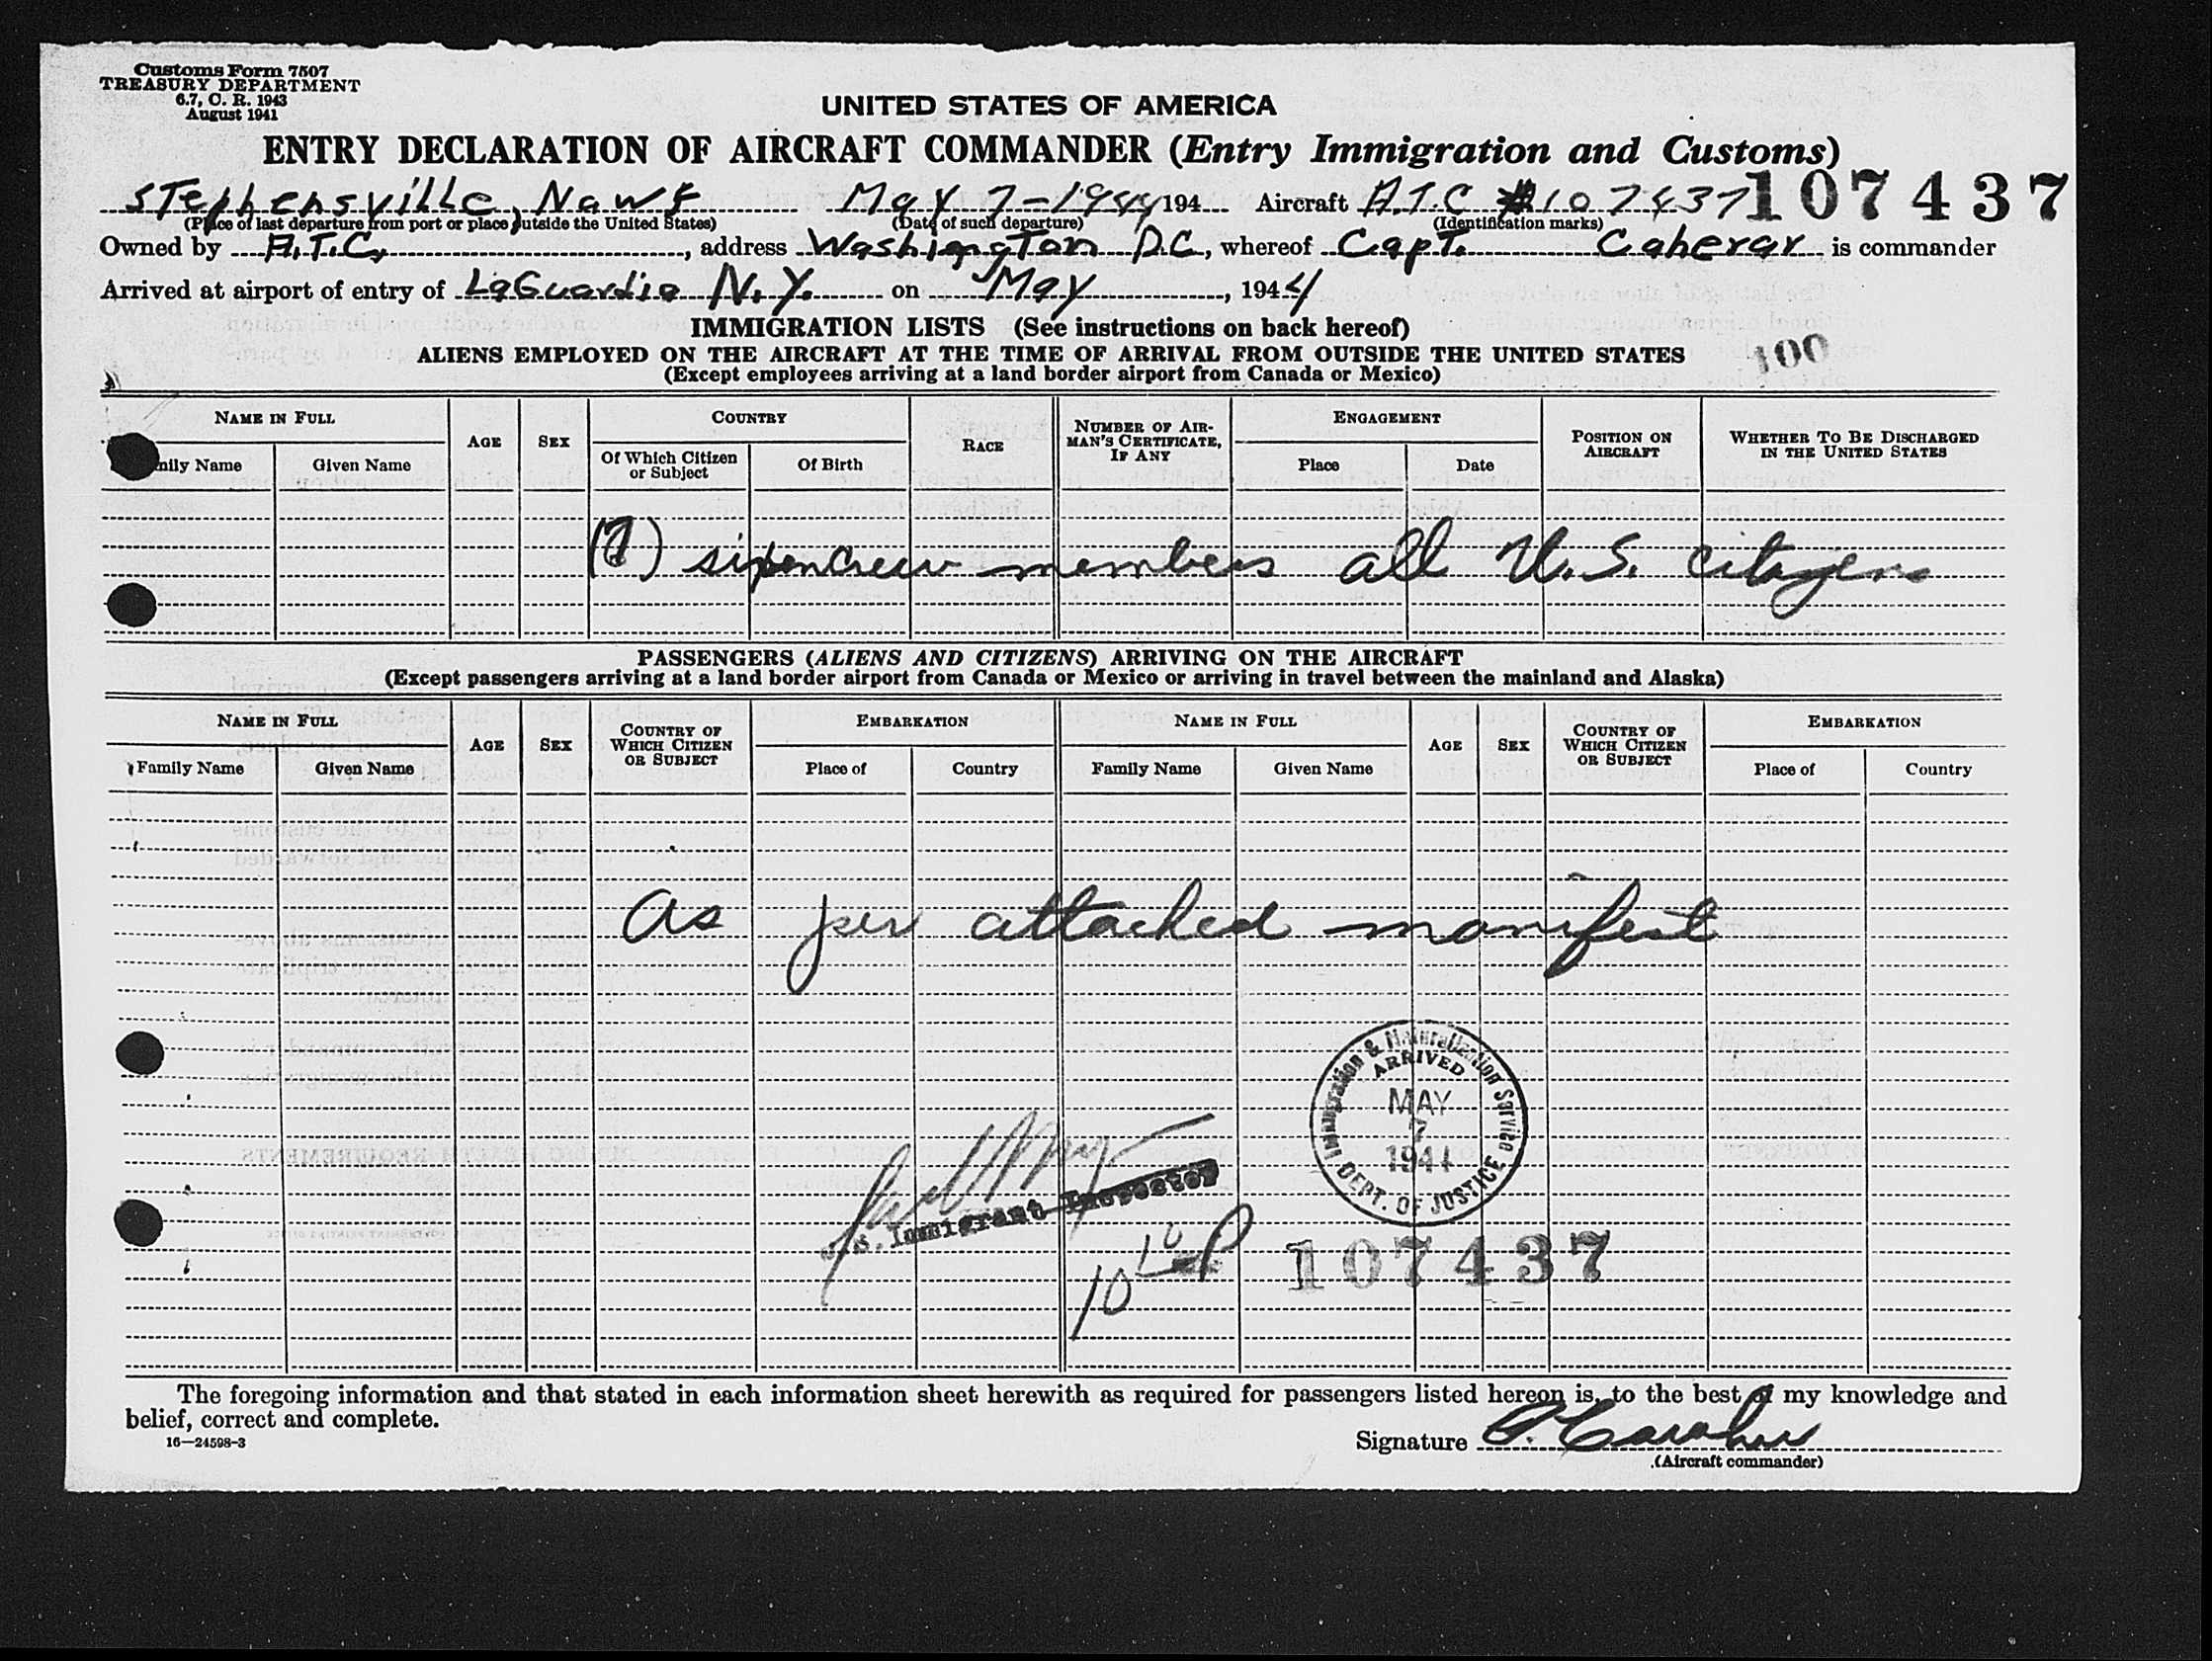 Customs Form 7507
TREASURY DEPARTMENT
6.7, C. R. 1943
August 1941
UNITED STATES OF AMERICA
ENTRY DECLARATION OF AIRCRAFT COMMANDER (Entry Immigration and Customs)
Stephensville, Nawf May 7-1944 194 Aircraft A.T.C #107437 107437
(Place of last departure from port or place outside the United States) (Date of such departure) (Identification marks)
Owned by A.T.C., address Washington D.C, whereof Capt. Caherar is commander
Arrived at airport of entry of LaGuardia N.Y. on May, 1944
IMMIGRATION LISTS (See instructions on back hereof)
ALIENS EMPLOYED ON THE AIRCRAFT AT THE TIME OF ARRIVAL FROM OUTSIDE THE UNITED STATES
100
(Except employees arriving at a land border airport from Canada or Mexico)
NAME IN FULL AGE SEX COUNTRY RACE NUMBER OF AIRMAN'S CERTIFICATE, IF ANY ENGAGEMENT POSITION ON AIRCRAFT WHETHER TO BE DISCHARGED IN THE UNITED STATES
mily Name Given Name Of Which Citizen or Subject Of Birth Place Date
(7) crew members all U.S. citizens
PASSENGERS (ALIENS AND CITIZENS) ARRIVING ON THE AIRCRAFT
(Except passengers arriving at a land border airport from Canada or Mexico or arriving in travel between the mainland and Alaska)
NAME IN FULL AGE SEX COUNTRY OF WHICH CITIZEN OR SUBJECT EMBARKATION NAME IN FULL AGE SEX COUNTRY OF WHICH CITIZEN OR SUBJECT EMBARKATION
Family Name Given Name Place of Country Family Name Given Name Place of Country
As per attached manifest
Immigration & Naturalization Service
ARRIVED
MAY
7
1944
DEPT. OF JUSTICE
S. Immigrant Inspector
10 10 P
107437
The foregoing information and that stated in each information sheet herewith as required for passengers listed hereon is, to the best of my knowledge and
belief, correct and complete.
16—24598-3
Signature
(Aircraft commander)